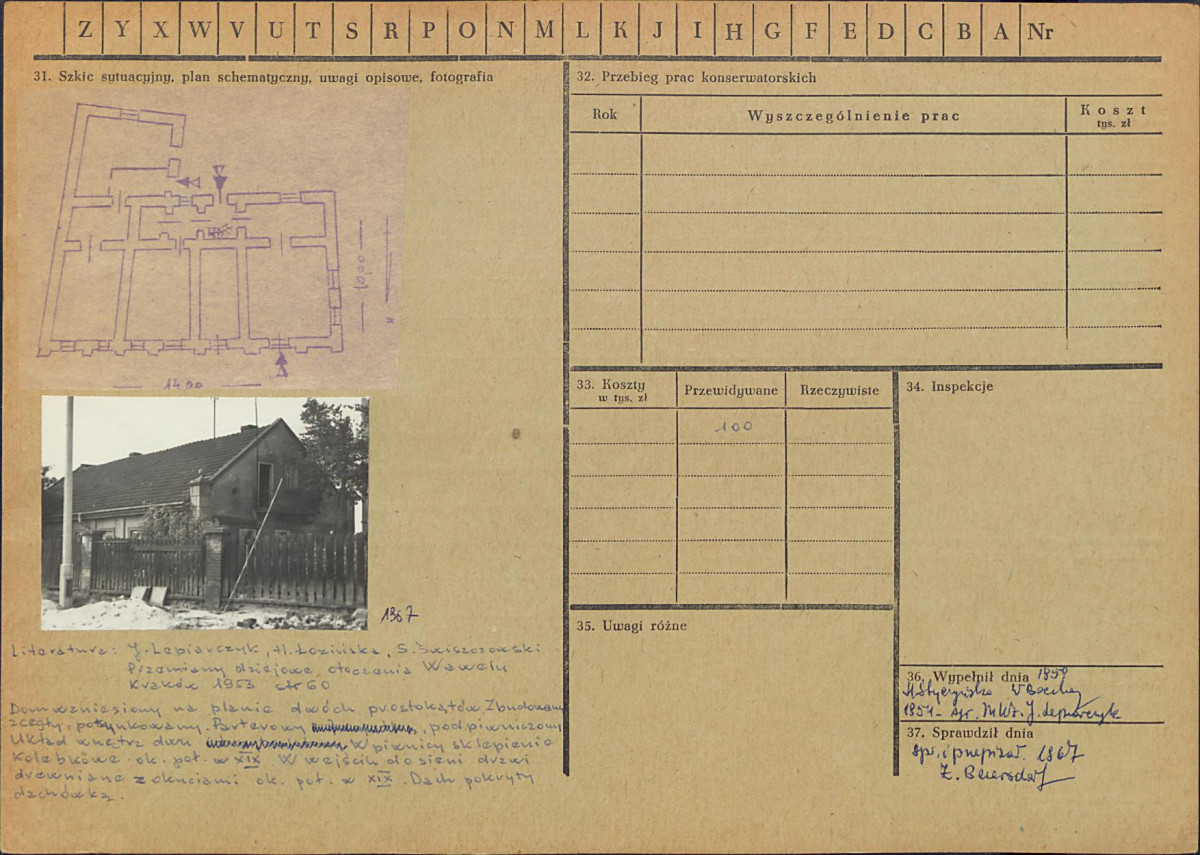 Z Y X W V U T S R P O N M L K J I H G F E D C B A Nr
31. Szkic sytuacyjny, plan schematyczny, uwagi opisowe, fotografia
10,00
N
14,00
1967
Literatura: J. Lepiarczyk, H. Łozińska, S. Świszczowski
Przemiany dziejowe otoczenia Wawelu
Kraków 1953 str 60
Dom wzniesiony na planie dwóch prostokątów. Zbudowany
z cegły, potynkowany. Parterowy, podpiwniczony
Układ wnętrz dwu W piwnicy sklepienie
kolebkowe ok. poł. w XIX. W wejściu do sieni drzwi
drewniane z okuciami ok. poł. w XIX. Dach pokryty
dachówką.
32. Przebieg prac konserwatorskich
Rok
Wyszczególnienie prac
Koszt
tys. zł
33. Koszty
w tys. zł
Przewidywane
Rzeczywiste
100
34. Inspekcje
35. Uwagi różne
36. Wypełnił dnia 1959
37. Sprawdził dnia
1967
Z. Beiersdorf